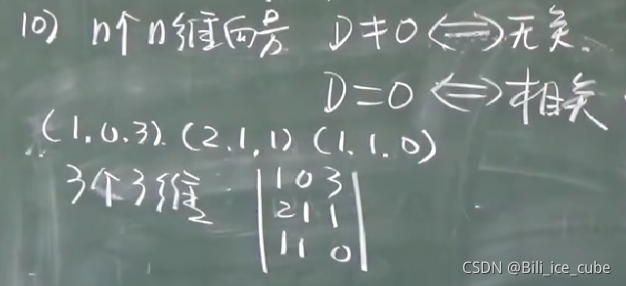 10) n个n维向量 D≠0⟺无关.
D=0⟺相关
(1.0.3). (2.1.1) (1.1.0)
3个3维 |1 0 3|
|2 1 1|
|1 1 0|
CSDN @Bili_ice_cube